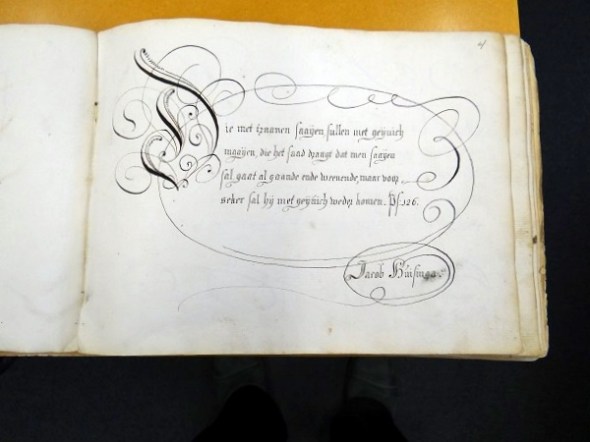 Die met traanen saajen sullen met gejuich
maajen, die het saad draagt dat men saajen
sal, gaat al gaande ende weenende, maar voor
seker sal hij met gejuich weder komen. Ps. 126.
Jacob Huisinga.